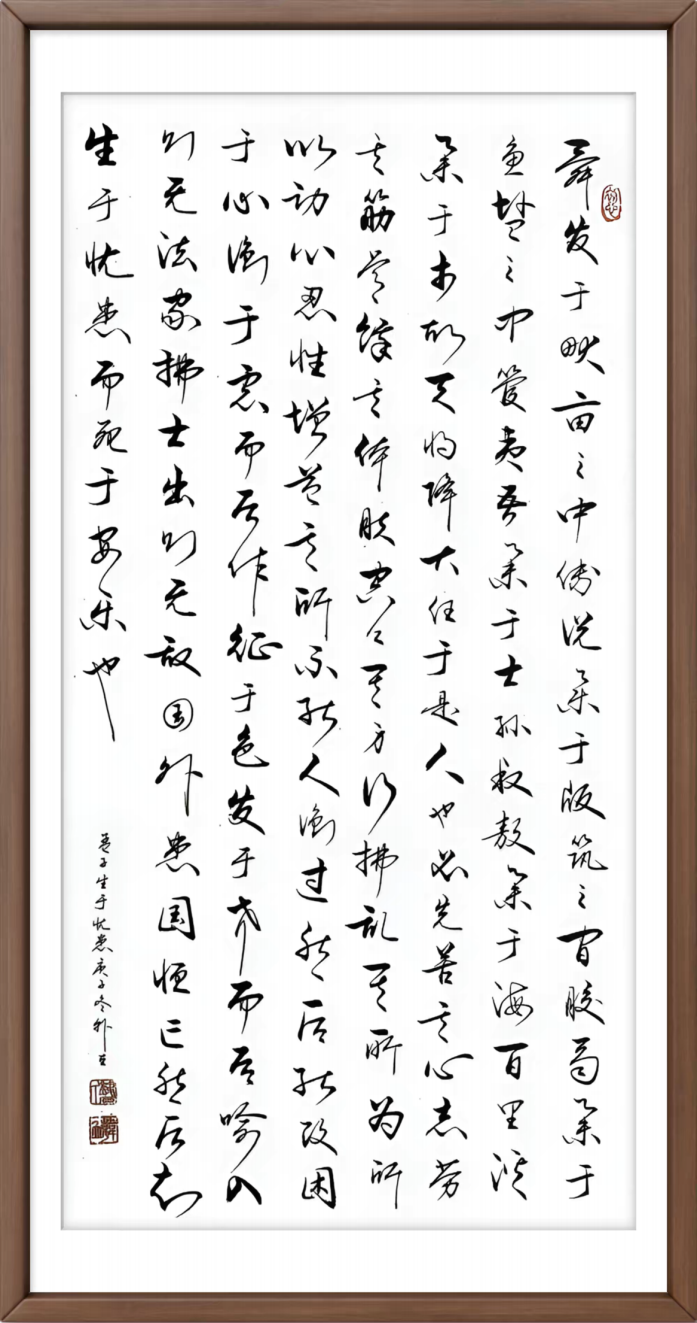 舜发于畎亩之中傅说举于版筑之间胶鬲举于
鱼盐之中管夷吾举于士孙叔敖举于海百里奚
举于市故天将降大任于是人也必先苦其心志劳
其筋骨饿其体肤空乏其身行拂乱其所为所
以动心忍性增益其所不能人衡过然后能改困
于心衡于虑而后作征于色发于声而后喻入
则无法家拂士出则无敌国外患国恒亡然后知
生于忧患而死于安乐也
孟子生于忧患庚子冬